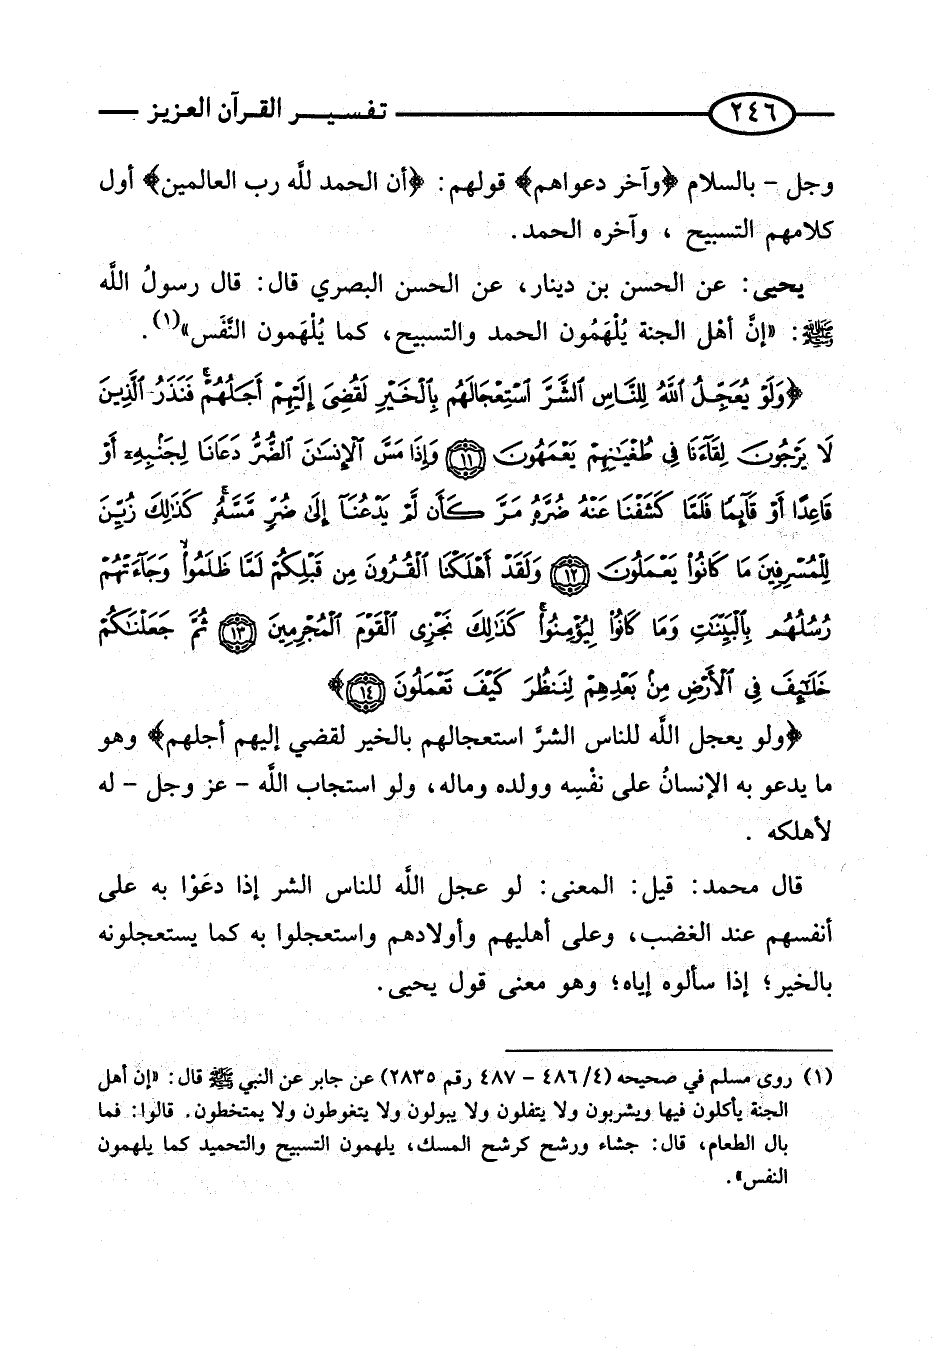 ٢٤٦ تفسير القرآن العزيز
وجل - بالسلام ﴿وآخر دعواهم﴾ قولهم: ﴿أن الحمد للَّه رب العالمين﴾ أول
كلامهم التسبيح ، وآخره الحمد.
يحيى: عن الحسن بن دينار، عن الحسن البصري قال: قال رسولُ اللَّه
ﷺ: «إنَّ أهْل الجنة يُلْهَمُون الحمد والتسبيح، كما يُلْهَمون النَّفَس»(١).
﴿وَلَوْ يُعَجِّلُ ٱللَّهُ لِلنَّاسِ ٱلشَّرَّ ٱسْتِعْجَالَهُم بِٱلْخَيْرِ لَقُضِىَ إِلَيْهِمْ أَجَلُهُمْ ۖ فَنَذَرُ ٱلَّذِينَ
لَا يَرْجُونَ لِقَآءَنَا فِى طُغْيَـٰنِهِمْ يَعْمَهُونَ ١١ وَإِذَا مَسَّ ٱلْإِنسَـٰنَ ٱلضُّرُّ دَعَانَا لِجَنۢبِهِۦٓ أَوْ
قَاعِدًا أَوْ قَآئِمًا فَلَمَّا كَشَفْنَا عَنْهُ ضُرَّهُۥ مَرَّ كَأَن لَّمْ يَدْعُنَآ إِلَىٰ ضُرٍّ مَّسَّهُۥ ۚ كَذَٰلِكَ زُيِّنَ
لِلْمُسْرِفِينَ مَا كَانُوا۟ يَعْمَلُونَ ١٢ وَلَقَدْ أَهْلَكْنَا ٱلْقُرُونَ مِن قَبْلِكُمْ لَمَّا ظَلَمُوا۟ ۙ وَجَآءَتْهُمْ
رُسُلُهُم بِٱلْبَيِّنَـٰتِ وَمَا كَانُوا۟ لِيُؤْمِنُوا۟ ۚ كَذَٰلِكَ نَجْزِى ٱلْقَوْمَ ٱلْمُجْرِمِينَ ١٣ ثُمَّ جَعَلْنَـٰكُمْ
خَلَـٰٓئِفَ فِى ٱلْأَرْضِ مِنۢ بَعْدِهِمْ لِنَنظُرَ كَيْفَ تَعْمَلُونَ ١٤﴾
﴿ولو يعجل اللَّه للناس الشرَّ استعجالهم بالخير لقضي إليهم أجلهم﴾ وهو
ما يدعو به الإنسانُ على نفْسِه وولده وماله، ولو استجاب اللَّه - عز وجل - له
لأهلكه .
قال محمد: قيل: المعنى: لو عجل اللَّه للناس الشر إذا دعَوْا به على
أنفسهم عند الغضب، وعلى أهليهم وأولادهم واستعجلوا به كما يستعجلونه
بالخير؛ إذا سألوه إياه؛ وهو معنى قول يحيى.
(١) روى مسلم في صحيحه (٤/ ٤٨٦ - ٤٨٧ رقم ٢٨٣٥) عن جابر عن النبي ﷺ قال: «إن أهل
الجنة يأكلون فيها ويشربون ولا يتفلون ولا يبولون ولا يتغوطون ولا يمتخطون. قالوا: فما
بال الطعام، قال: جشاء ورشح كرشح المسك، يلهمون التسبيح والتحميد كما يلهمون
النفس».